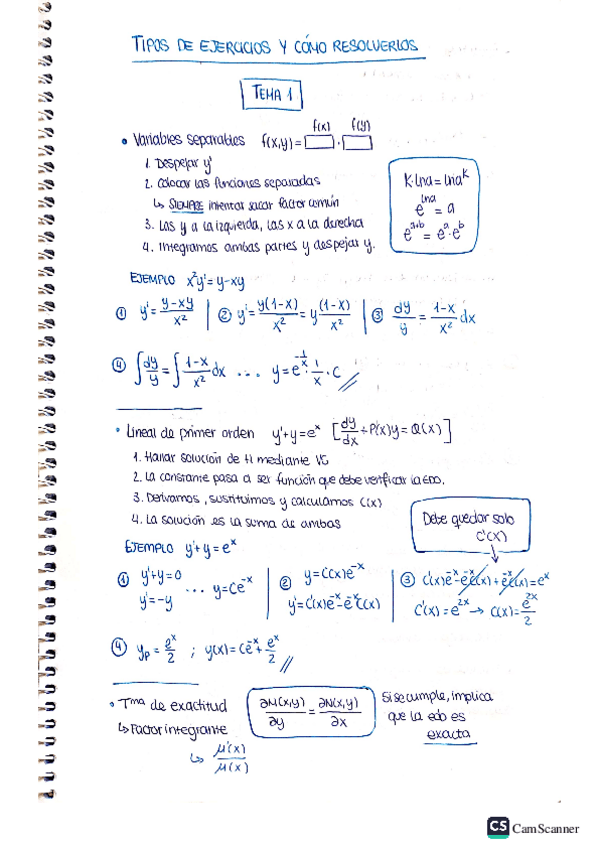 TIPOS DE EJERCICIOS Y CÓMO RESOLVERLOS
TEMA 1
• Variables separables f(x,y) = □ · □
f(x) f(y)
1. Despejar y'
2. Colocar las funciones separadas
↳ SIEMPRE intentar sacar factor común
3. Las y a la izquierda, las x a la derecha
4. Integramos ambas partes y despejar y.
K·lna = lna^k
e^lna = a
e^a+b = e^a · e^b
EJEMPLO x²y' = y-xy
① y' = (y-xy)/x² | ② y' = y(1-x)/x² = y (1-x)/x² | ③ dy/y = (1-x)/x² dx
④ ∫dy/y = ∫(1-x)/x² dx ... y = e^(-1/x) · 1/x · C //
• Lineal de primer orden y'+y = e^x [dy/dx + P(x)y = Q(x)]
1. Hallar solución de H mediante VS
2. La constante pasa a ser función que debe verificar la EDO.
3. Derivamos, sustituimos y calculamos C(x)
4. La solución es la suma de ambas
Debe quedar solo
C'(x)
EJEMPLO y'+y = e^x
① y'+y = 0
y' = -y ... y = Ce^-x
② y = C(x)e^-x
y' = C'(x)e^-x - e^-x C(x)
③ C'(x)e^-x - e^-x C(x) + e^-x C(x) = e^x
C'(x) = e^2x → C(x) = e^2x/2
④ yp = e^x/2 ; y(x) = Ce^-x + e^x/2 //
• Tma de exactitud
∂M(x,y)/∂y = ∂N(x,y)/∂x
Si se cumple, implica
que la edo es
exacta
↳ Factor integrante
↳ μ'(x)/μ(x)
CS CamScanner